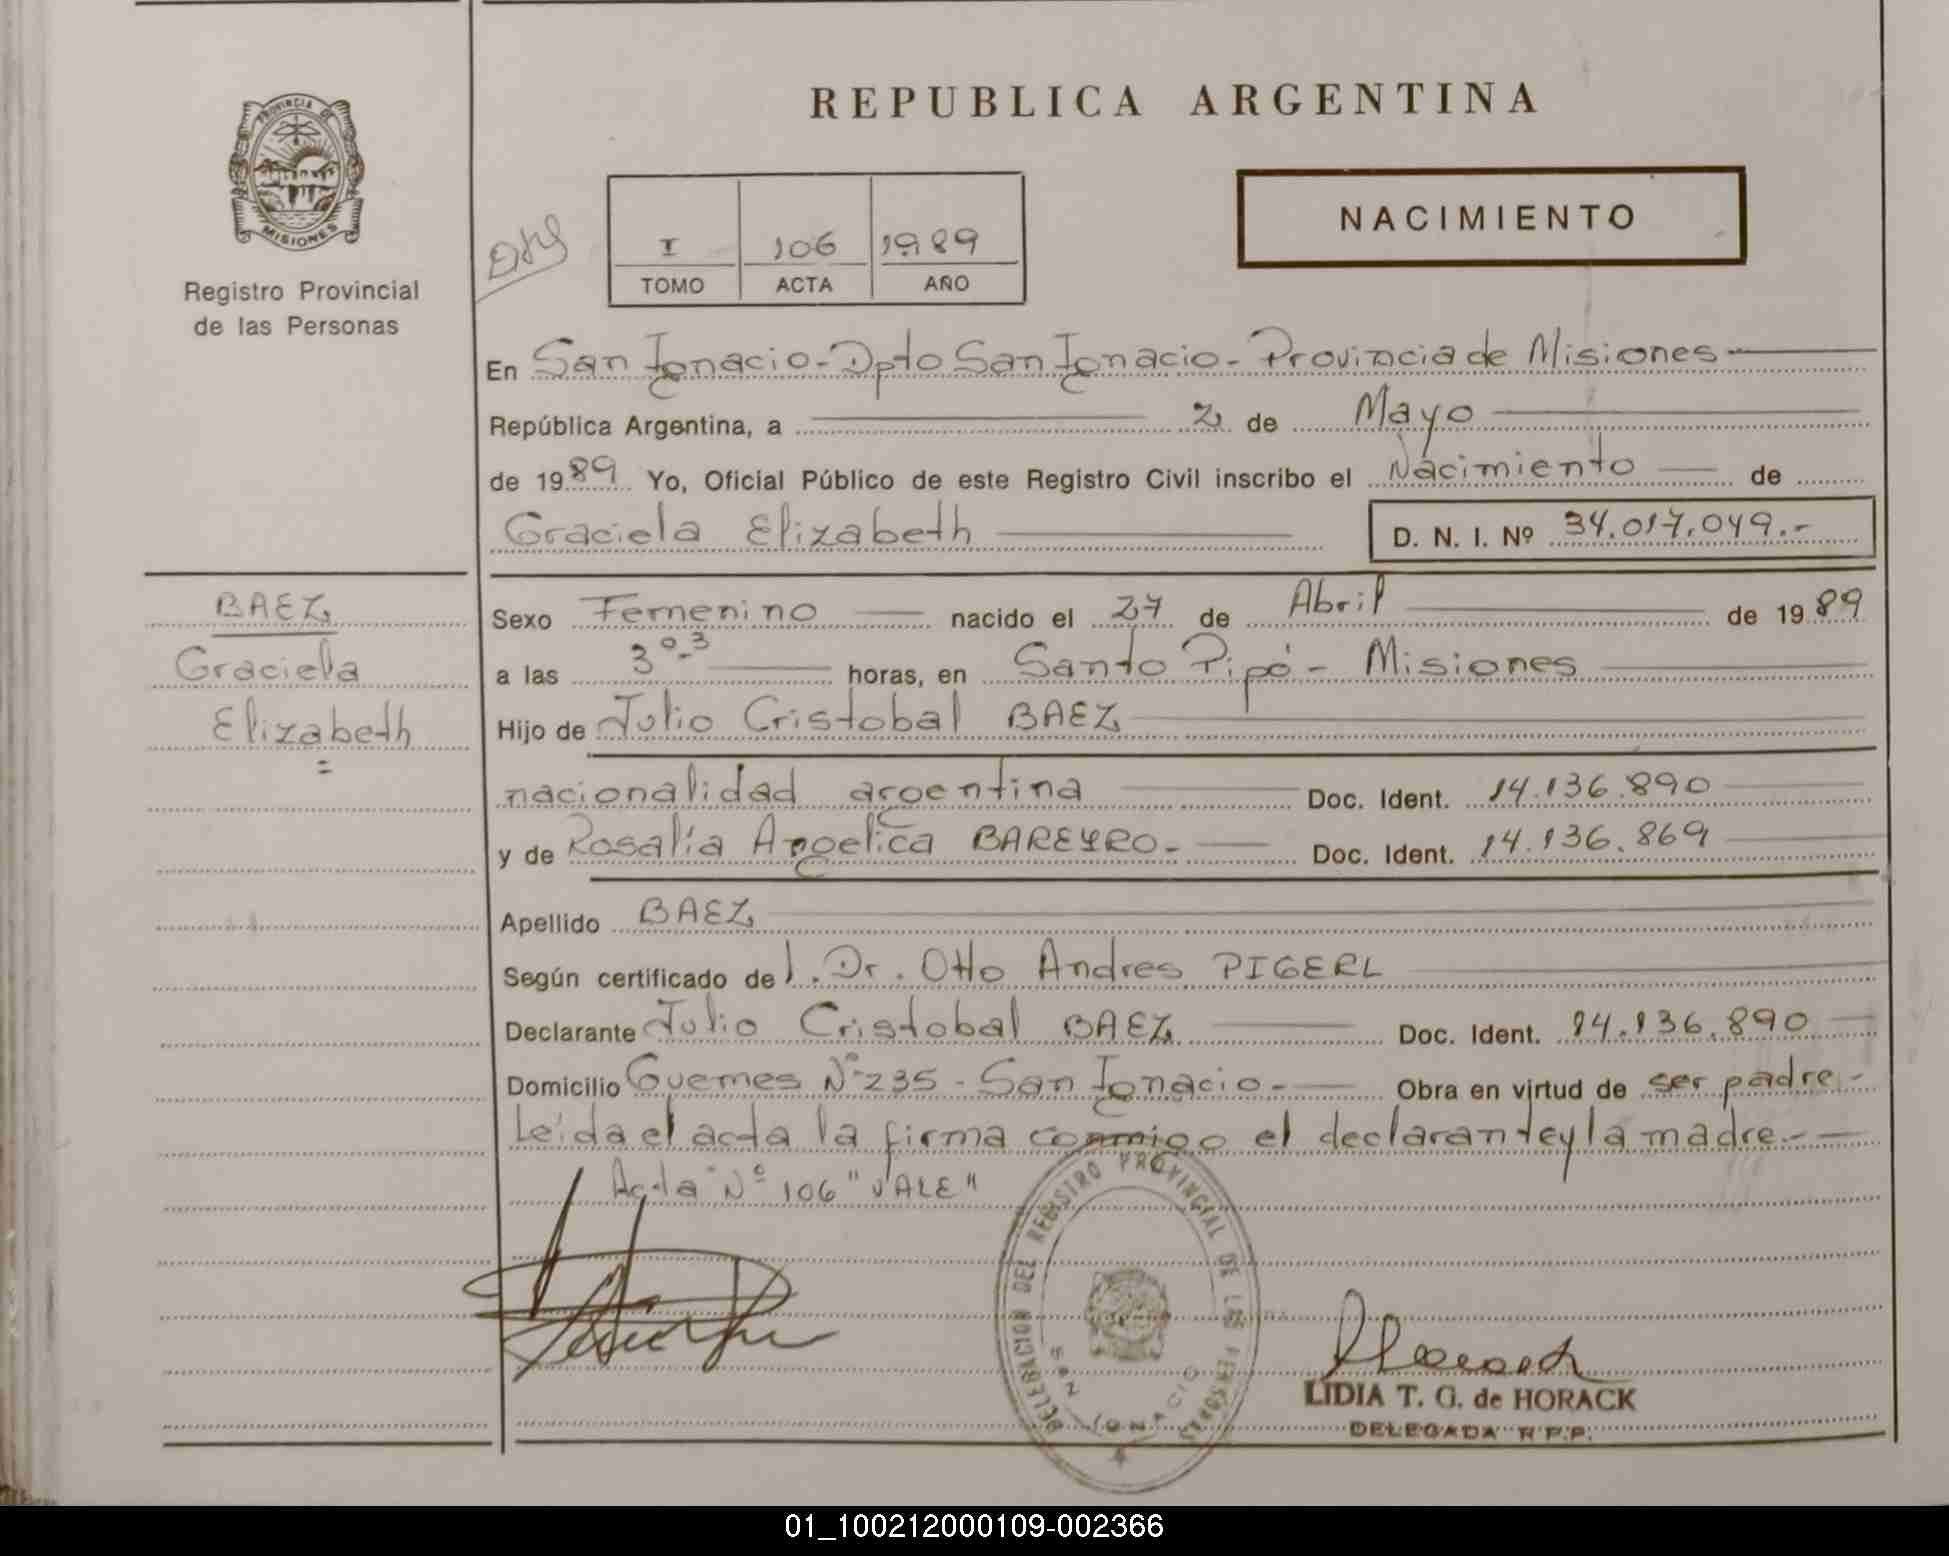 REPUBLICA ARGENTINA
PROVINCIA DE
MISIONES
Registro Provincial
de las Personas
I 106 1989
TOMO ACTA AÑO
NACIMIENTO
En San Ignacio - Dpto San Ignacio - Provincia de Misiones
República Argentina, a 2 de Mayo
de 1989 Yo, Oficial Público de este Registro Civil inscribo el Nacimiento de
Graciela Elizabeth D. N. I. Nº 34.017.049.-
BAEZ
Graciela
Elizabeth
Sexo Femenino nacido el 27 de Abril de 1989
a las 3 horas, en Santo Pipó - Misiones
Hijo de Julio Cristobal BAEZ
nacionalidad argentina Doc. Ident. 14.136.890
y de Rosalía Angelica BAREYRO.- Doc. Ident. 14.136.869
Apellido BAEZ
Según certificado del. Dr. Otto Andres PIGERL
Declarante Julio Cristobal BAEZ Doc. Ident. 14.136.890
Domicilio Guemes Nº 235 - San Ignacio.- Obra en virtud de ser padre.-
Leída el acta la firma conmigo el declarante y la madre.-
Acta Nº 106 "VALE"
DELEGACION DEL REGISTRO PROVINCIAL DE LAS PERSONAS
SAN IGNACIO
LIDIA T. G. de HORACK
DELEGADA R.P.P.
01_100212000109-002366